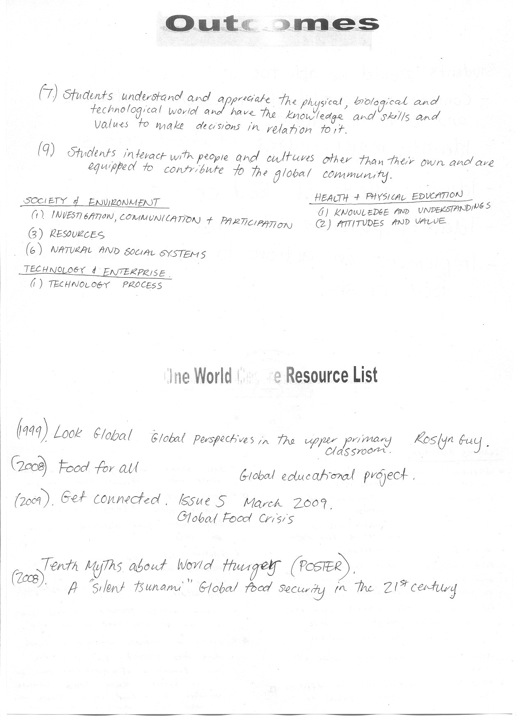 Outcomes
(7) Students understand and appreciate the physical, biological and
technological world and have the knowledge and skills and
values to make decisions in relation to it.
(9) Students interact with people and cultures other than their own and are
equipped to contribute to the global community.
SOCIETY & ENVIRONMENT
(1) INVESTIGATION, COMMUNICATION + PARTICIPATION
(3) RESOURCES
(6) NATURAL AND SOCIAL SYSTEMS
TECHNOLOGY & ENTERPRISE
(1) TECHNOLOGY PROCESS
HEALTH + PHYSICAL EDUCATION
(1) KNOWLEDGE AND UNDERSTANDINGS
(2) ATTITUDES AND VALUE
One World Centre Resource List
(1999). Look Global Global Perspectives in the upper primary Roslyn Guy.
classroom.
(2008) Food for all Global educational project.
(2009). Get connected. Issue 5 March 2009.
Global Food Crisis
Tenth Myths about World Hunger (POSTER).
(2008). A "silent tsunami" Global food security in the 21st century